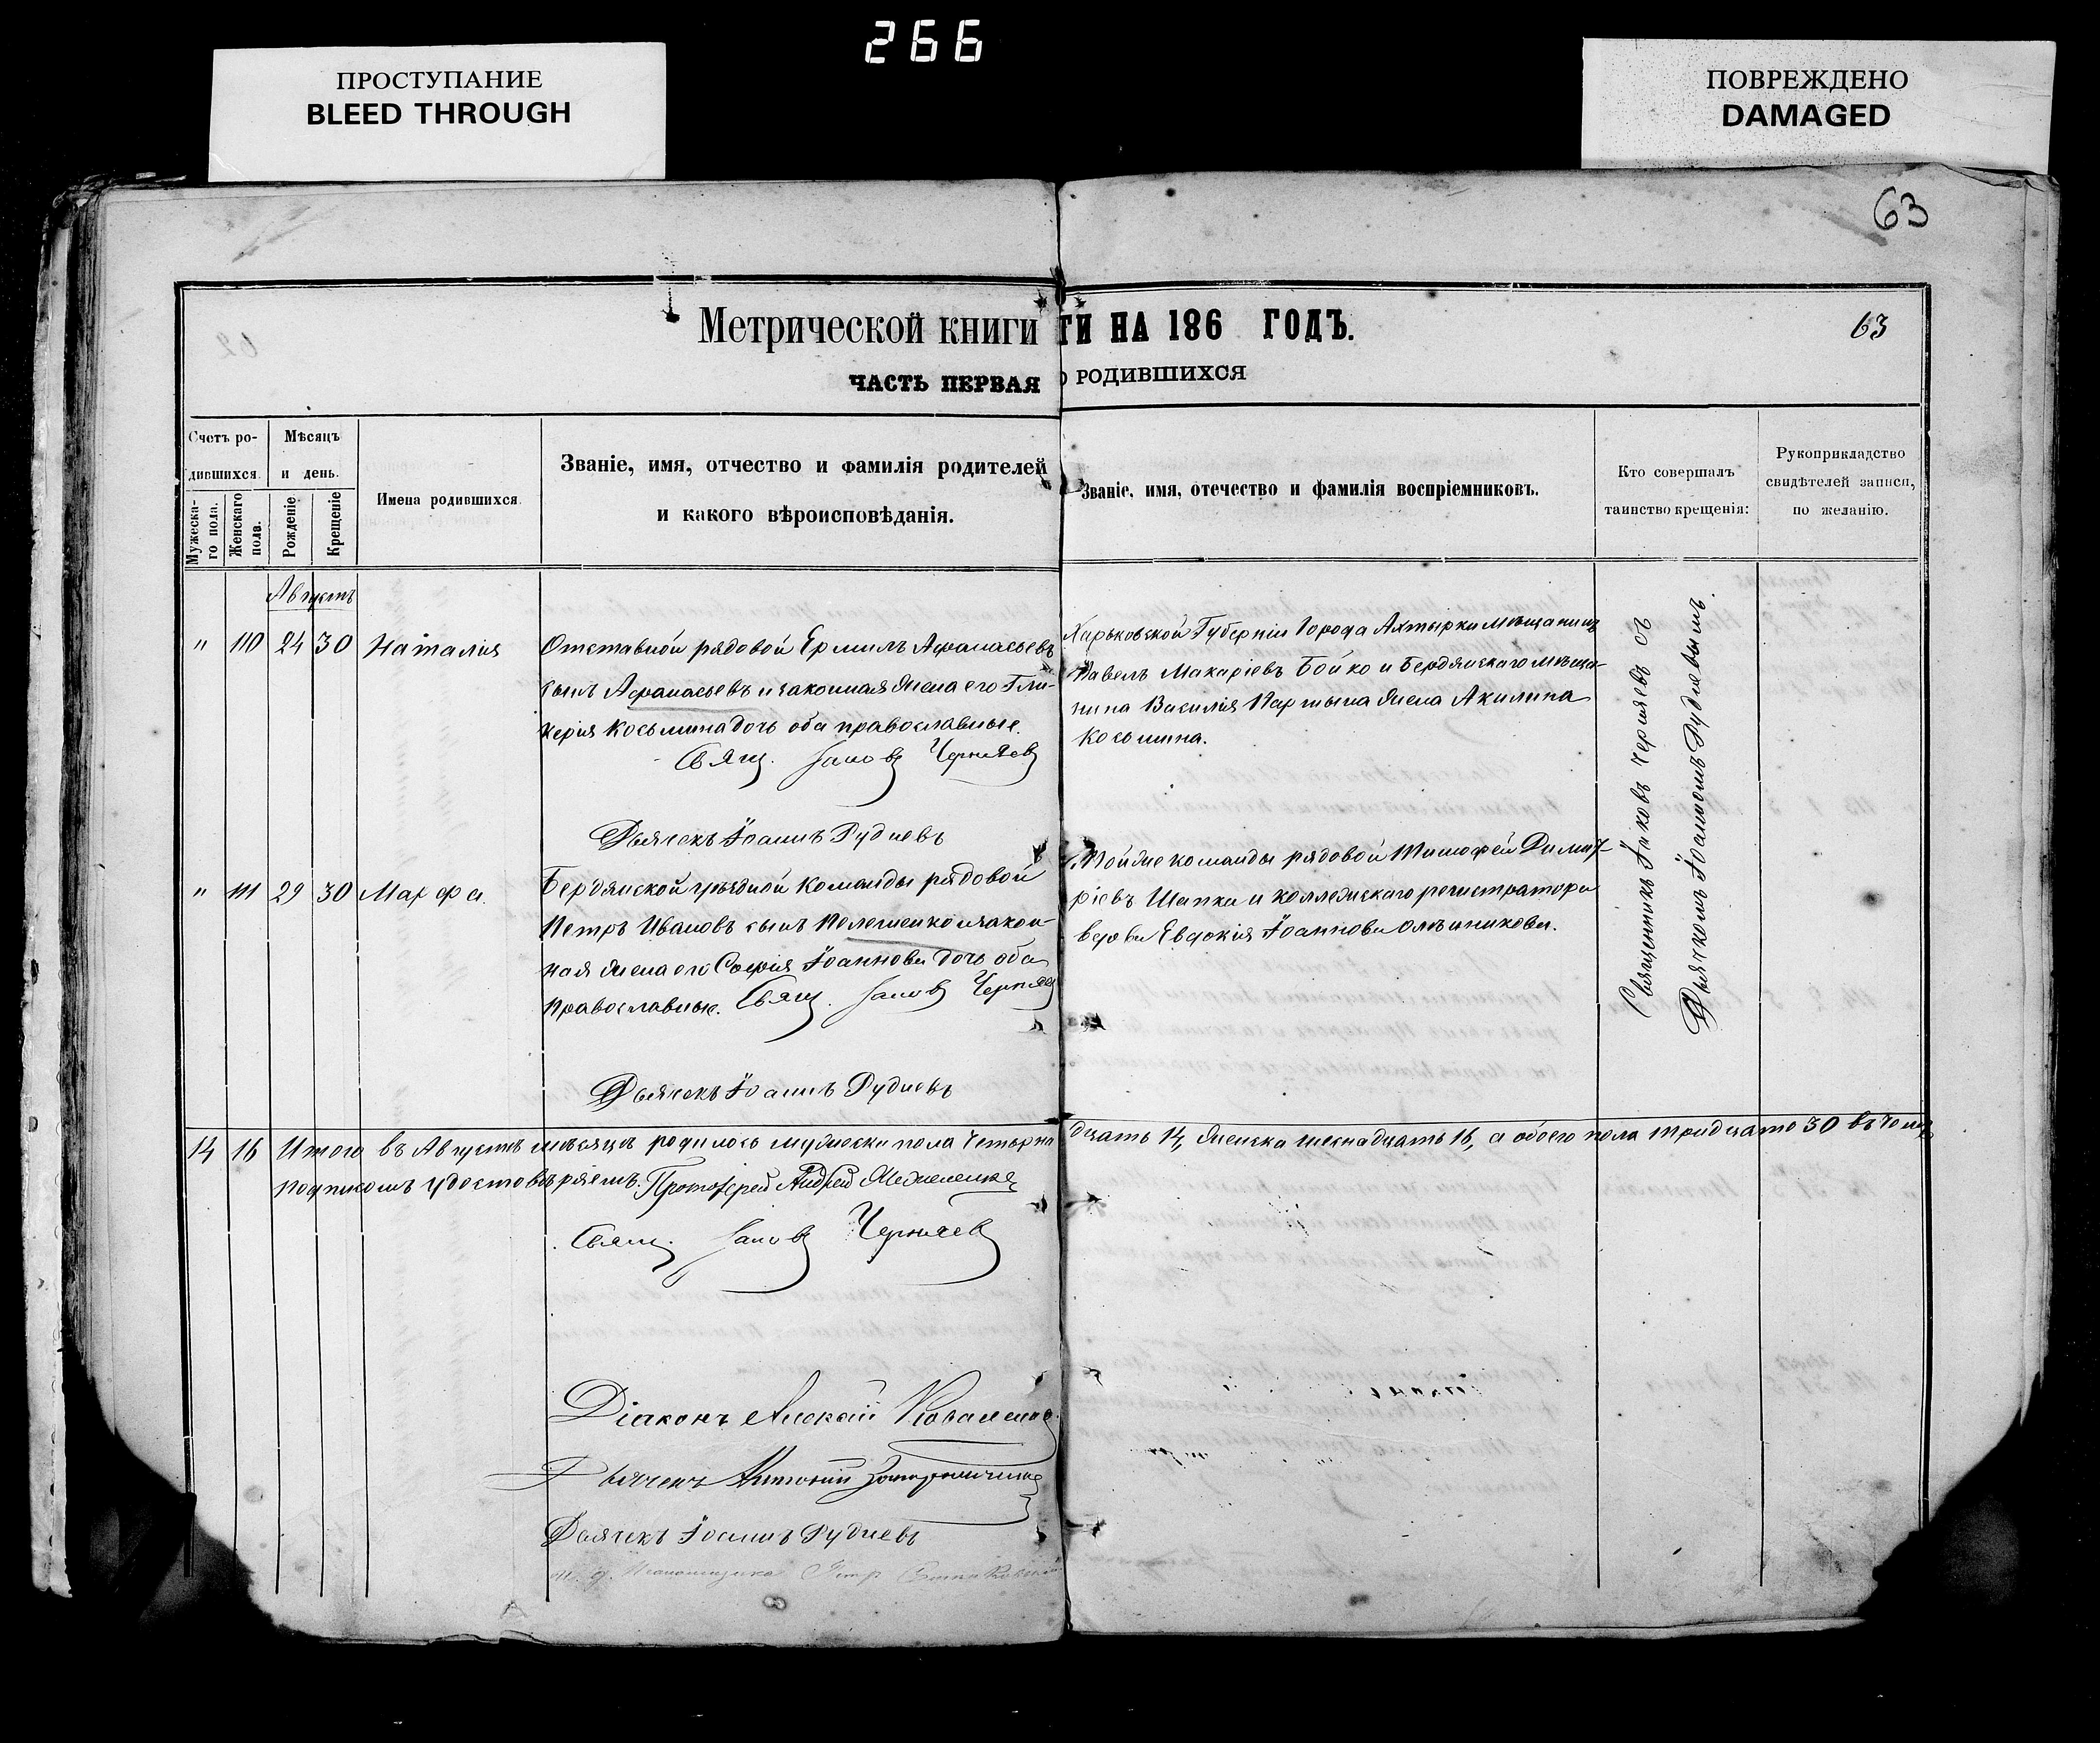 266
ПРОСТУПАНИЕ
BLEED THROUGH
ПОВРЕЖДЕНО
DAMAGED
63
Метрической книги
ТИ НА 186 ГОДЪ.
63
ЧАСТЬ ПЕРВАЯ
О РОДИВШИХСЯ
Счетъ ро-
дившихся.
Мужеска-
го пола.
Женскаго
пола.
Мѣсяцъ
и день.
Рожденіе
Крещеніе
Имена родившихся
Званіе, имя, отчество и фамилія родителей
и какого вѣроисповѣданія.
Званіе, имя, отечество и фамилія воспріемниковъ.
Кто совершалъ
таинство крещенія:
Рукоприкладство
свидѣтелей записи,
по желанію.
Августъ
" 110 24 30 Наталія
Отставной рядовой Ермилъ Афанасьевъ
сынъ Афанасьевъ и законная жена его Гли-
керія Косьмина дочь оба православные.
Свящ. Іаковъ Черняевъ
Дьячекъ Іоаннъ Рудневъ
Харьковской Губерніи Города Ахтырки мѣщанинъ
Павелъ Макаріевъ Бойко и Бердянскаго мѣща-
нина Василія Паршына жена Акилина
Косьмина.
Священникъ Іаковъ Черняевъ съ
Дьячкомъ Іоанномъ Рудневымъ.
" 111 29 30 Марфа.
Бердянской уѣздной команды рядовой
Петръ Ивановъ сынъ Пелешенко и закон-
ная жена его Софія Іоаннова дочь оба
православные. Свящ. Іаковъ Черняев
Дьячекъ Іоаннъ Рудневъ
Тойже команды рядовой Тимофей Димит-
ріевъ Шапка и коллежскаго регистратора
вдова Евдокія Іоаннова
14 16 Итого въ Августѣ мѣсяцѣ родилось мужеска пола четырна
дцать 14, женска шестнадцать 16, а обоего пола тридцать 30 въ чемъ
подписомъ удостовѣряемъ. Протоіерей Андрей
Свящ. Іаковъ Черняевъ
Діаконъ Алексѣй Коваленко
Дьячекъ Антоній
Дьячекъ Іоаннъ Рудневъ
и. д. Пономаря Петр